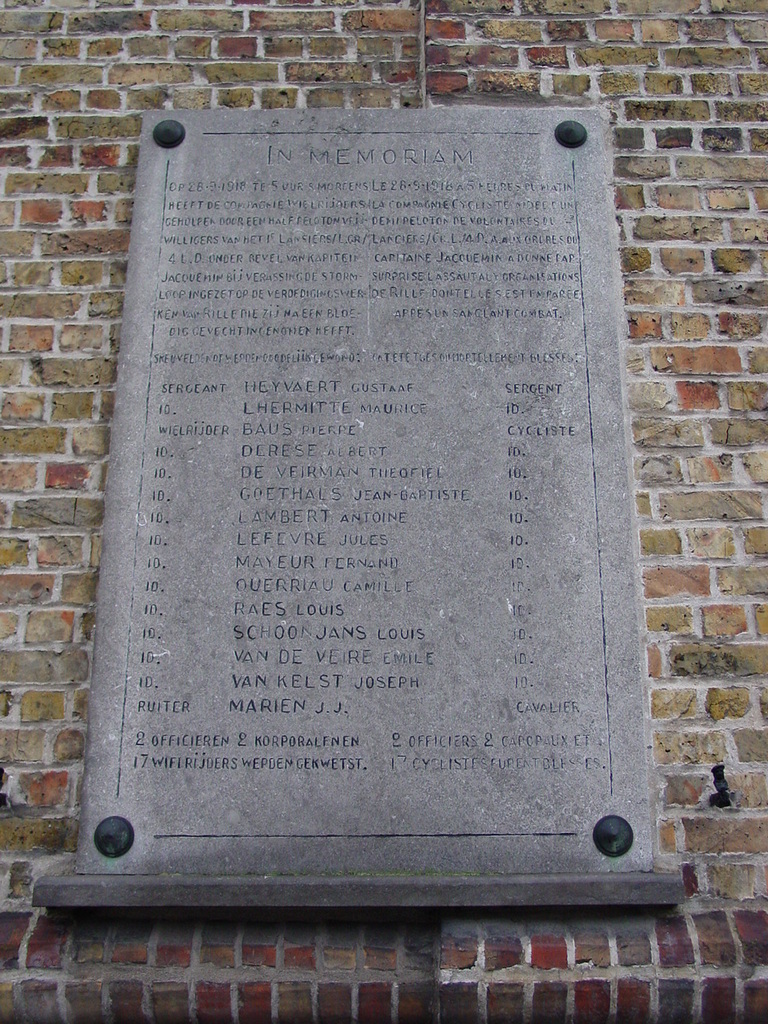 IN MEMORIAM
OP 28-9-1918 TE 5 UUR SMORGENS
HEEFT DE COMPAGNIE WIELRIJDERS
GEHOLPEN DOOR EEN HALF PELOTON VRIJ
WILLIGERS VAN HET 1E LANSIERS/L.GR/
4 L.D. ONDER BEVEL VAN KAPITEIN
JACQUEMIN BIJ VERASSING DE STORM-
LOOP INGEZET OP DE VERDEDIGINGSWER
KEN VAN RILLE DIE ZIJ NA EEN BLOE-
DIG GEVECHT INGENOMEN HEEFT.
LE 28-9-1918 A 5 HEURES DU MATIN
LA COMPAGNIE CYCLISTE AIDEE D'UN
DEMI PELOTON DE VOLONTAIRES DU
LANCIERS/GR.L./4.D.A. AUX ORDRES DU
CAPITAINE JACQUEMIN A DONNE PAR
SURPRISE L'ASSAUT AUX ORGANISATIONS
DE RILLE DONT ELLE S'EST EMPAREE
APRES UN SANGLANT COMBAT.
SNEUVELDEN OF WERDEN DOODELIJK GEWOND:
ONT ETE TUES OU MORTELLEMENT BLESSES:
SERGEANT HEYVAERT GUSTAAF SERGENT
ID. LHERMITTE MAURICE ID.
WIELRIJDER BAUS PIERRE CYCLISTE
ID. DERESE ALBERT ID.
ID. DE VEIRMAN THEOFIEL ID.
ID. GOETHALS JEAN-BAPTISTE ID.
ID. LAMBERT ANTOINE ID.
ID. LEFEVRE JULES ID.
ID. MAYEUR FERNAND ID.
ID. QUERRIAU CAMILLE ID.
ID. RAES LOUIS ID.
ID. SCHOONJANS LOUIS ID.
ID. VAN DE VEIRE EMILE ID.
ID. VAN KELST JOSEPH ID.
RUITER MARIEN J.J. CAVALIER
2 OFFICIEREN 2 KORPORALEN EN
17 WIELRIJDERS WERDEN GEKWETST.
2 OFFICIERS 2 CAPORAUX ET
17 CYCLISTES FURENT BLESSES.